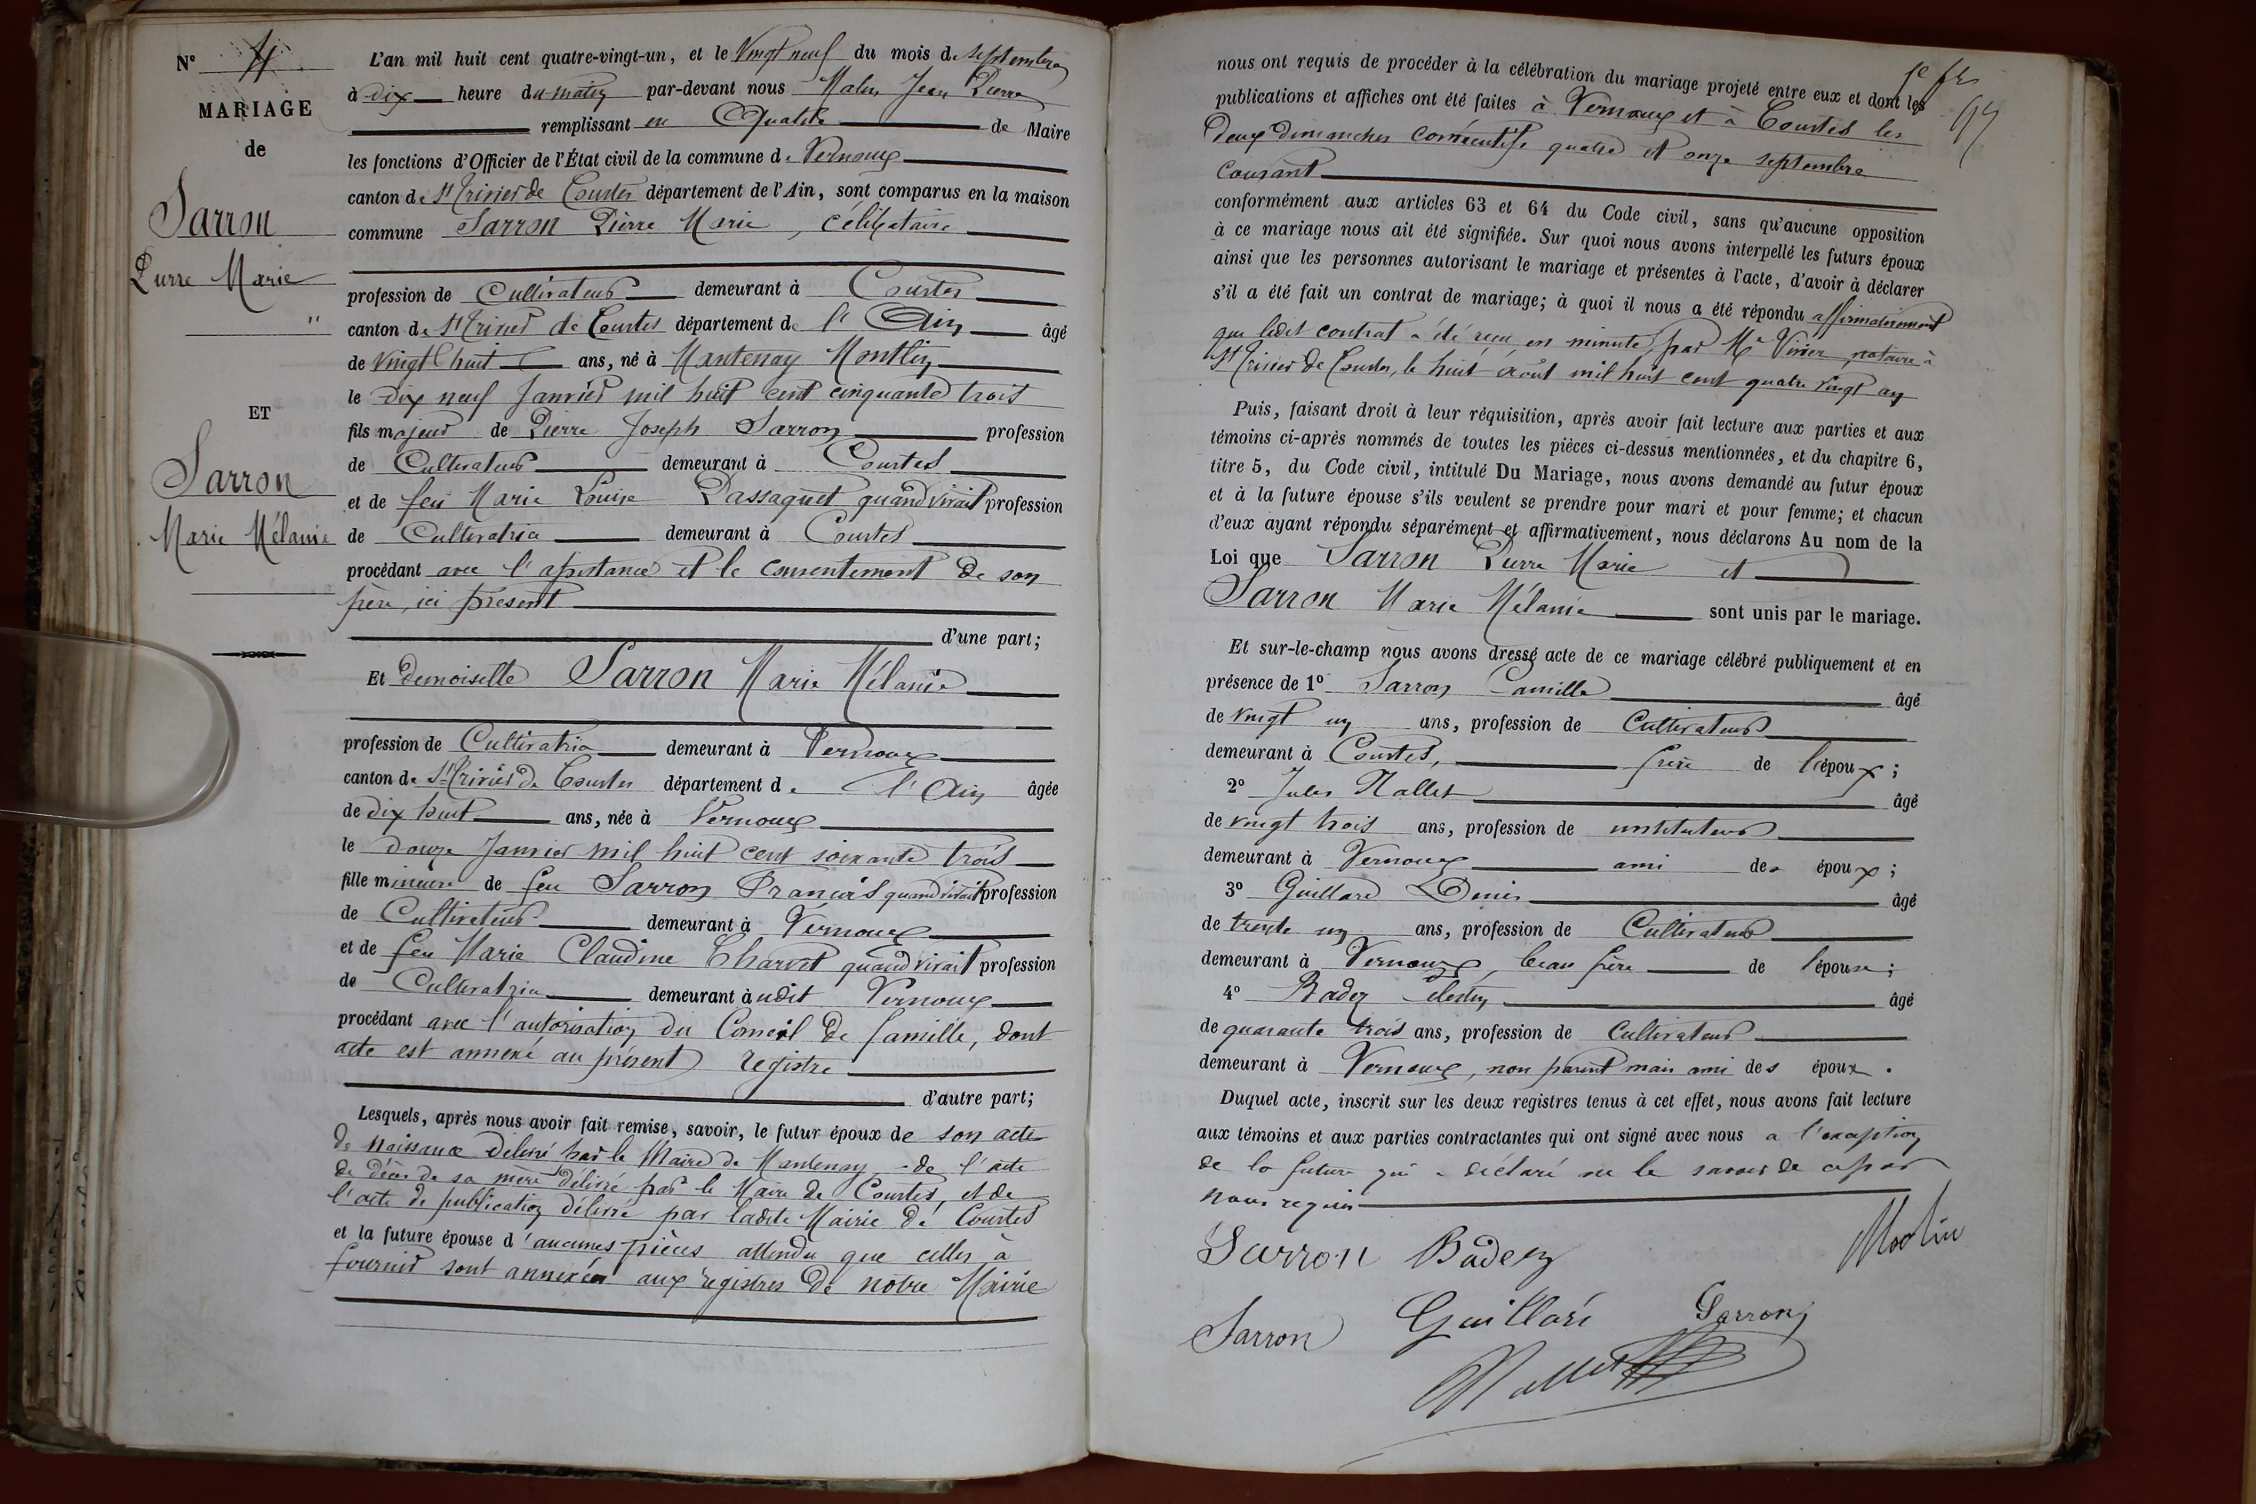 N° 4
MARIAGE
de
Sarron
Pierre Marie
ET
Sarron
Marie Mélanie
L'an mil huit cent quatre-vingt-un, et le Vingt neuf du mois de septembre
à dix heure du matin par-devant nous Jean Pierre
remplissant en Qualité de Maire
les fonctions d'Officier de l'État civil de la commune de Vernoux
canton de St Trivier de Courtes département de l'Ain, sont comparus en la maison
commune Sarron Pierre Marie, célibataire
profession de Cultivateur demeurant à Courtes
canton de St Trivier de Courtes département de l'Ain âgé
de vingt huit ans, né à Mantenay Montlin
le dix neuf Janvier mil huit cent cinquante trois
fils majeur de Pierre Joseph Sarron profession
de Cultivateur demeurant à Courtes
et de feu Marie Louise Passaquet quand vivait profession
de Cultivatrice demeurant à Courtes
procédant avec l'assistance et le consentement de son
père, ici présent
d'une part;
Et demoiselle Sarron Marie Mélanie
profession de Cultivatrice demeurant à Vernoux
canton de St Trivier de Courtes département de l'Ain âgée
de dix huit ans, née à Vernoux
le douze Janvier mil huit cent soixante trois
fille mineure de feu Sarron François quand vivait profession
de Cultivateur demeurant à Vernoux
et de feu Marie Claudine Charvet quand vivait profession
de Cultivatrice demeurant audit Vernoux
procédant avec l'autorisation du Conseil de famille, dont
acte est annexé au présent registre
d'autre part;
Lesquels, après nous avoir fait remise, savoir, le futur époux de son acte
de naissance délivré par le Maire de Mantenay - de l'acte
de décès de sa mère délivré par le Maire de Courtes, et de
l'acte de publication délivré par ladite Mairie de Courtes
et la future épouse d'aucunes pièces attendu que celles à
fournir sont annexées aux registres de notre Mairie
nous ont requis de procéder à la célébration du mariage projeté entre eux et dont les
publications et affiches ont été faites à Vernoux et à Courtes les
deux dimanches consécutifs quatre et onze septembre
courant
conformément aux articles 63 et 64 du Code civil, sans qu'aucune opposition
à ce mariage nous ait été signifiée. Sur quoi nous avons interpellé les futurs époux
ainsi que les personnes autorisant le mariage et présentes à l'acte, d'avoir à déclarer
s'il a été fait un contrat de mariage; à quoi il nous a été répondu affirmativement
que ledit contrat a été reçu en minute par Me notaire à
St Trivier de Courtes, le huit août mil huit cent quatre vingt un
Puis, faisant droit à leur réquisition, après avoir fait lecture aux parties et aux
témoins ci-après nommés de toutes les pièces ci-dessus mentionnées, et du chapitre 6,
titre 5, du Code civil, intitulé Du Mariage, nous avons demandé au futur époux
et à la future épouse s'ils veulent se prendre pour mari et pour femme; et chacun
d'eux ayant répondu séparément et affirmativement, nous déclarons Au nom de la
Loi que Sarron Pierre Marie et
Sarron Marie Mélanie sont unis par le mariage.
Et sur-le-champ nous avons dressé acte de ce mariage célébré publiquement et en
présence de 1° Sarron Camille âgé
de vingt un ans, profession de Cultivateur
demeurant à Courtes, frère de l'époux;
2° Jules Mallet âgé
de vingt trois ans, profession de instituteur
demeurant à Vernoux ami des époux;
3° Guillard Denis âgé
de trente un ans, profession de Cultivateur
demeurant à Vernoux, beau frère de l'épouse;
4° Badez Célestin âgé
de quarante trois ans, profession de Cultivateur
demeurant à Vernoux, non parent mais ami des époux.
Duquel acte, inscrit sur les deux registres tenus à cet effet, nous avons fait lecture
aux témoins et aux parties contractantes qui ont signé avec nous à l'exception
de la future qui a déclaré ne le savoir de ce par
nous requis
Sarron Badez
Sarron Guillard Sarron
Mallet